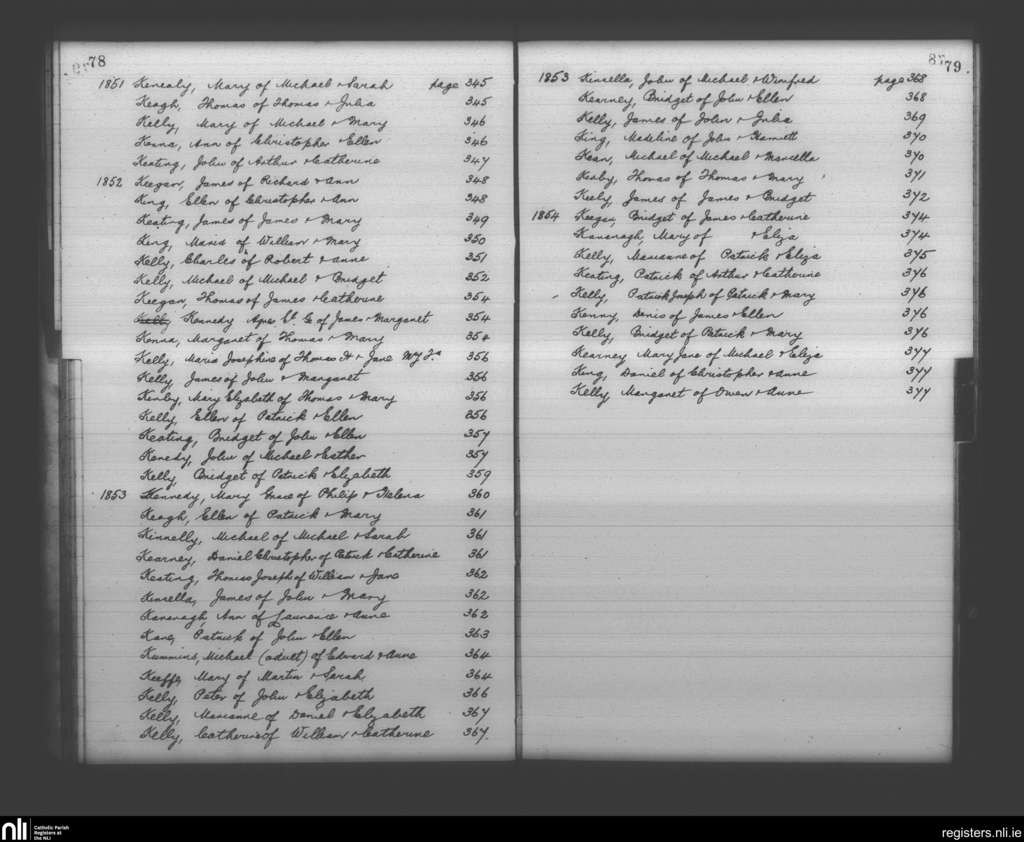 78
1851 Kenealy, Mary of Michael & Sarah page 345
Keogh, Thomas of Thomas & Julia 345
Kelly, Mary of Michael & Mary 346
Kenna, Ann of Christopher & Ellen 346
Keating, John of Arthur & Catherine 347
1852 Keegan, James of Richard & Ann 348
King, Ellen of Christopher & Ann 348
Keating, James of James & Mary 349
King, Maria of William & Mary 350
Kelly, Charles of Robert & Anne 351
Kelly, Michael of Michael & Bridget 352
Keegan, Thomas of James & Catherine 354
Kelly Kennedy Agnes of James & Margaret 354
Kenna, Margaret of Thomas & Mary 354
Kelly, Maria Josephine of Thomas & Jane 356
Kelly, James of John & Margaret 356
Kinby, Mary Elizabeth of Thomas & Mary 356
Kelly, Ellen of Patrick & Ellen 356
Keating, Bridget of John & Ellen 357
Kenedy, John of Michael & Esther 357
Kelly, Bridget of Patrick & Elizabeth 359
1853 Kennedy, Mary Grace of Philip & Helena 360
Keogh, Ellen of Patrick & Mary 361
Kinnelly, Michael of Michael & Sarah 361
Kearney, Daniel Christopher of Patrick & Catherine 361
Keating, Thomas Joseph of William & Jane 362
Kinsella, James of John & Mary 362
Kavanagh, Ann of Laurence & Anne 362
Kane, Patrick of John & Ellen 363
Kummins, Michael (adult) of Edward & Anne 364
Keeffe, Mary of Martin & Sarah 364
Kelly, Peter of John & Elizabeth 366
Kelly, Marianne of Daniel & Elizabeth 367
Kelly, Catherine of William & Catherine 367
79
1853 Kinsella, John of Michael & Winifred page 368
Kearney, Bridget of John & Ellen 368
Kelly, James of John & Julia 369
King, Madeline of John & Harriett 370
Kean, Michael of Michael & Marcella 370
Thomas of Thomas & Mary 371
Keely, James of James & Bridget 372
1854 Keegan, Bridget of James & Catherine 374
Kavanagh, Mary of & Eliza 374
Kelly, Marianne of Patrick & Eliza 375
Keating, Patrick of Arthur & Catherine 376
Kelly, Patrick Joseph of Patrick & Mary 376
Kenny, Denis of James & Ellen 376
Kelly, Bridget of Patrick & Mary 376
Kearney Mary Jane of Michael & Eliza 377
King, Daniel of Christopher & Anne 377
Kelly, Margaret of Owen & Anne 377
nli Catholic Parish
Registers at
the NLI
registers.nli.ie